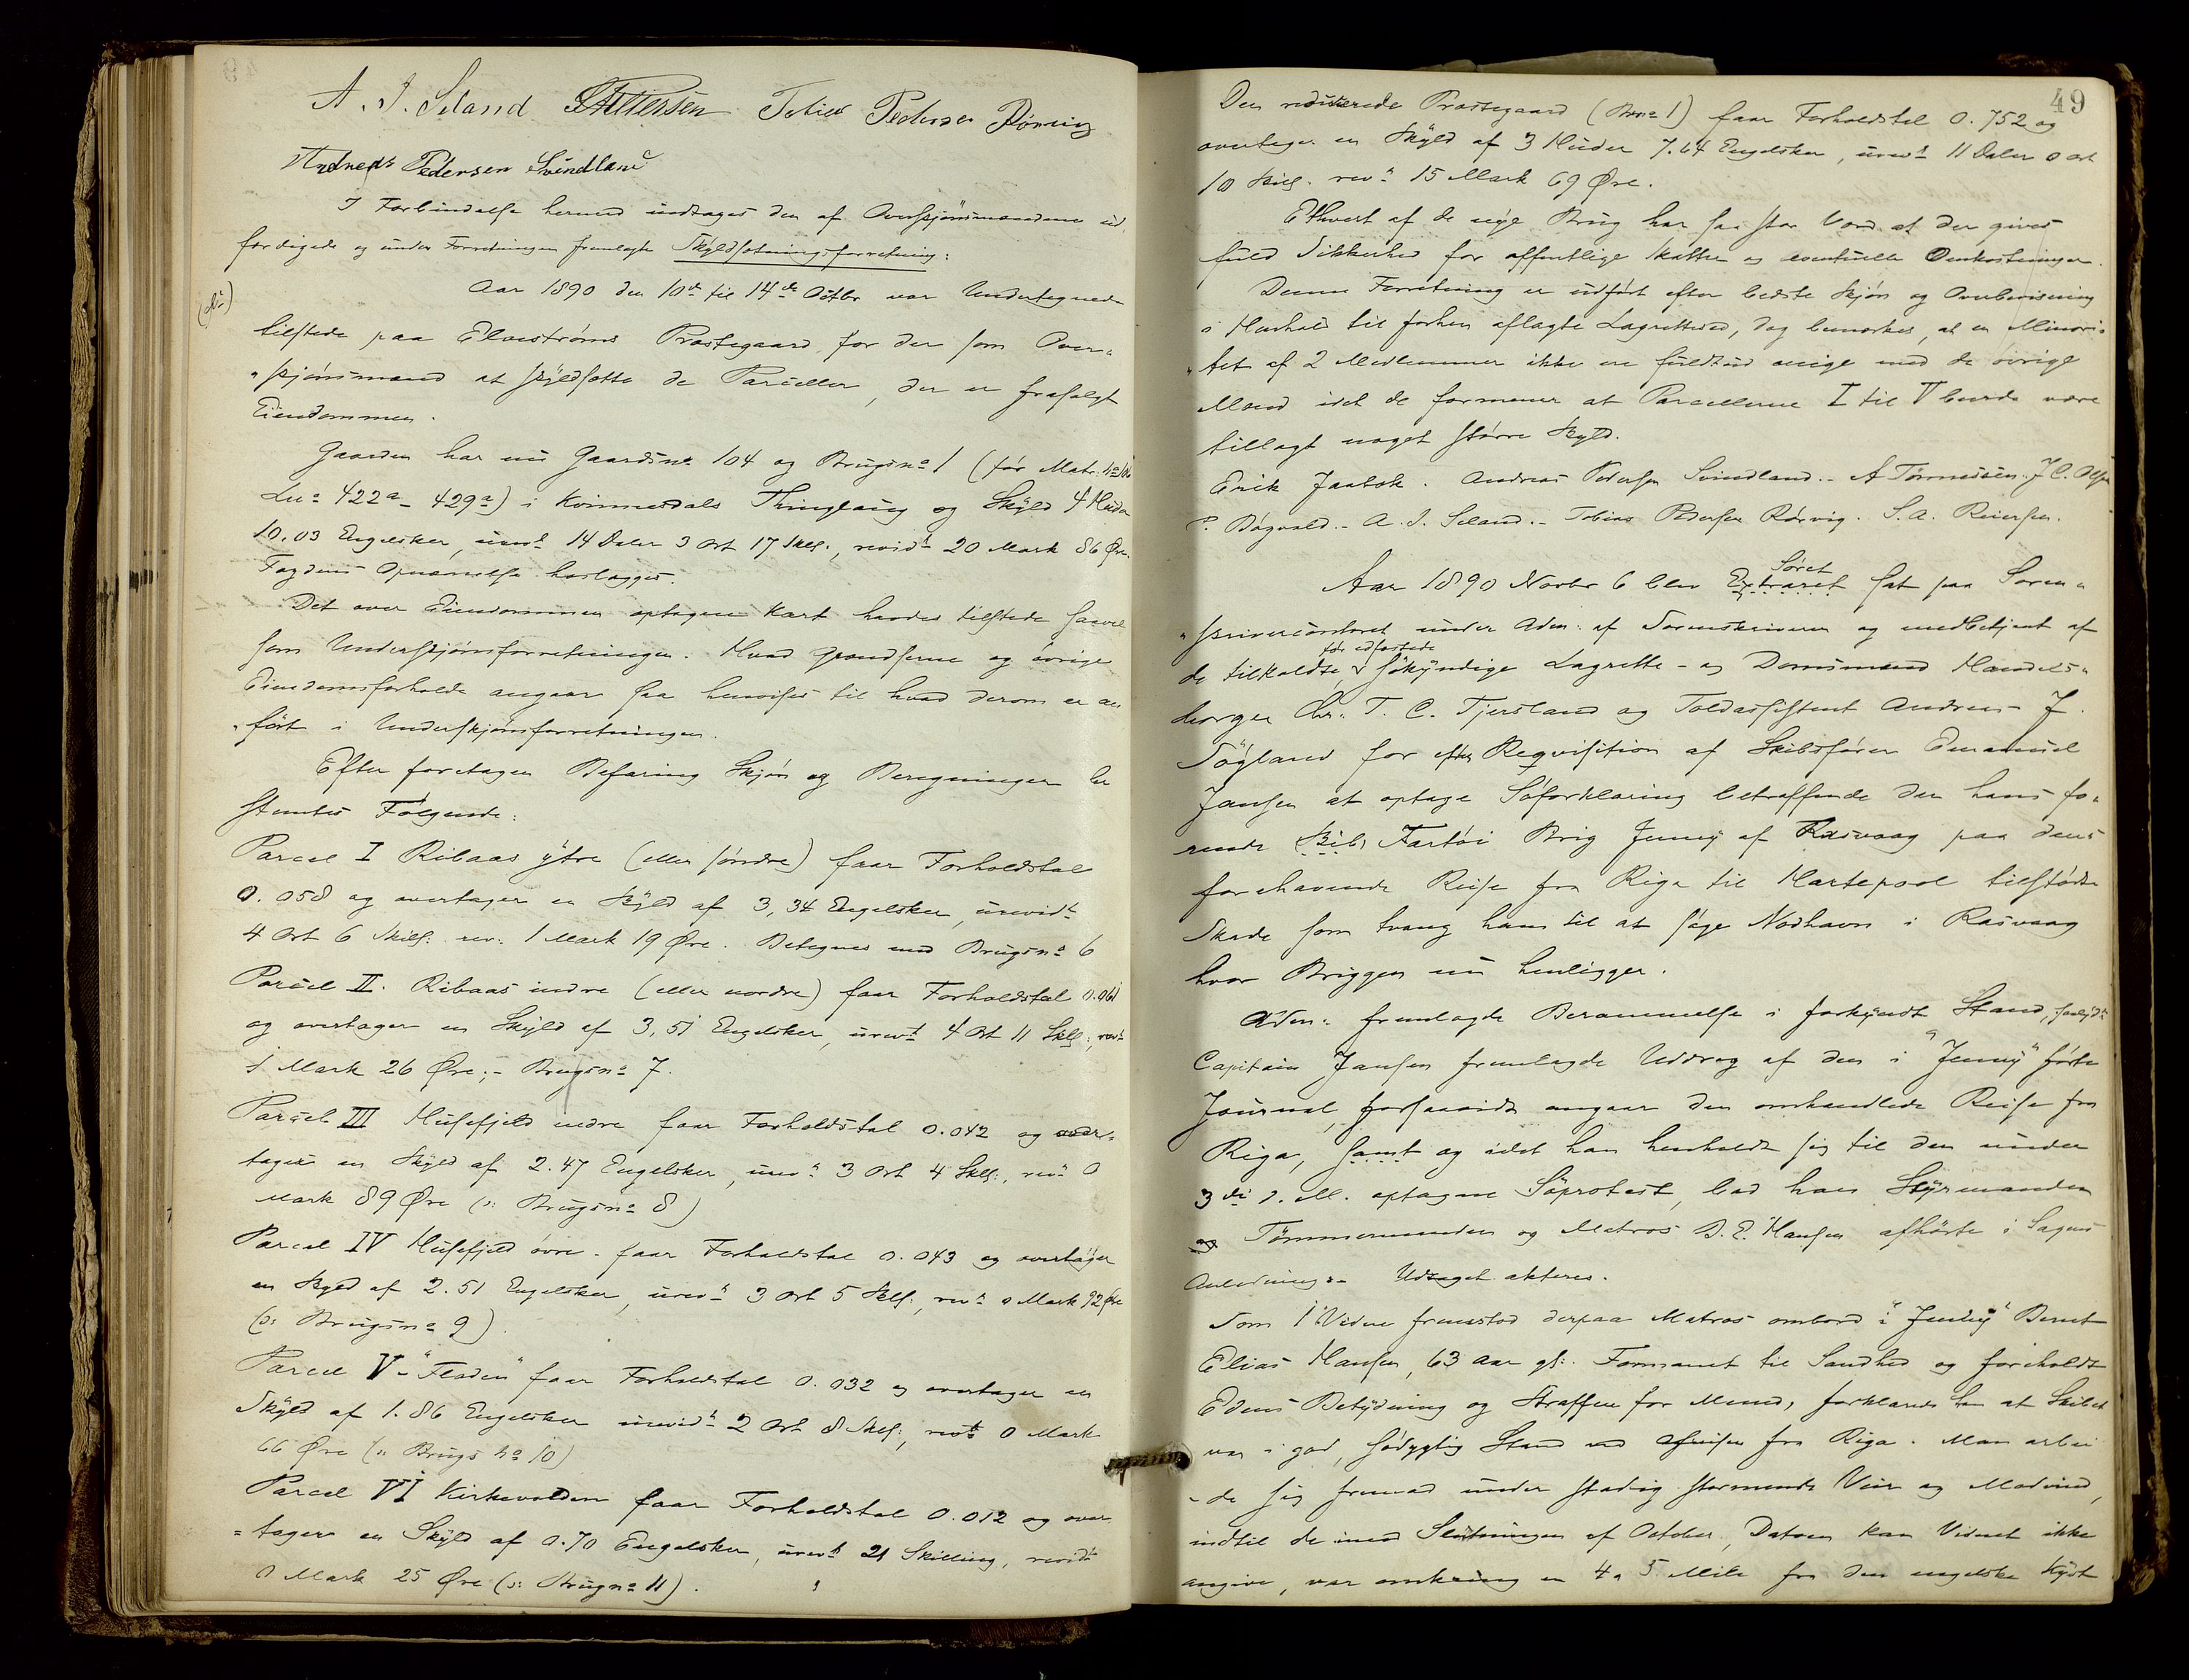 A. I. Seland Tobias Pedersen Rörvig
Andreas Pedersen Svindland
I Forbindelse hermed indtages den af Overskjönsmændene ud,
færdigede og under Forretningen fremlagte Skyldsætningsforretning:
Aar 1890 den 10de til 14de Octbr var Undertegnede
tilstede paa Elvestrøms Præstegaard for der som Over=
"skjönsmænd at skyldsætte de Parceller, der er frasolgt
Eiendommen.
Gaarden har nu Gaardsno 104 og Brugsno 1 (før Matr. No
Lno 422a - 429a) i Kvinnesdals Thinglaug og Skyld 4 Huder
10.03 Engelsker, urevt 14 Daler 3 Ort 17 Skill., revidt 20 Mark 86 Øre.
Fogdens Opnævnelse hoslægges.
Det over Eiendommen optagne Kart havdes tilstede saavel
som Underskjönsforretningen. Hvad Grændserne og övrige
Eiendomsforholde angaar saa henvises til hvad derom er an
"fört i Underskjönsforretningen.
Efter foretagen Befaring Skjön og Beregninger be
stemtes Fölgende:
Parcel I Ribaas ytre (eller söndre) faar Forholdstal
0.058 og overtager en Skyld af 3,34 Engelsker, urevidt
4 Ort 6 Skill: rev: 1 Mark 19 Øre. Betegnes med Brugsno 6
Parcel II. Ribaas indre (eller nordre) faar Forholdstal 0.061
og overtager en Skyld af 3,51 Engelsker, urevt 4 Ort 11 Skll:, revt
1 Mark 26 Øre;- Brugsno 7.
Parcel III Husefjeld indre faar Forholdstal 0.042 og over=
tager en Skyld af 2.47 Engelsker, urevt 3 Ort 4 Skll:, revt 0
Mark 89 Øre (ɔ: Brugsno 8)
Parcel IV Husefjeld övre - faar Forholdstal 0.043 og overtager
en Skyld af 2.51 Engelsker, urevt 3 Ort 5 Skll:, revt 0 Mark 92 Øre
(ɔ: Brugsno 9).
Parcel V - "Fladen" faar Forholdstal 0.032 og overtager en
Skyld af 1.86 Engelsker urevidt 2 Ort 8 Skll:, revt 0 Mark
66 Øre (ɔ: Brugs no 10)
Parcel VI Kirkevolden faar Forholdstal 0.012 og over
=tager en Skyld af 0.70 Engelsker, urevt 21 Skilling, revidt
0 Mark 25 Øre (ɔ: Brugno 11).
49
Den reducerede Præstegaard (Brno 1) faar Forholdstal 0.752 og
overtager en Skyld af 3 Huder 7.64 Engelsker, urevt 11 Daler 0 Ort
10 Skill. revt 15 Mark 69 Øre.
Ethvert af de nye Brug har saa stor Værd at der gives
fuld Sikkerhed for offentlige Skatter og eventuelle Omkostninger.
Denne Forretning er udfört efter bedste Skjön og Overbevisning
i Henhold til forhen aflagte Lagretteed, dog bemærkes, at en Minori=
"tet af 2 Medlemmer ikke er fuldtud enige med de övrige
Mænd idet de formener at Parcellerne I til V burde være
tillagt noget större Skyld.
Erik Jaabæk. Andreas Pedersen Svindland. - A Tönnessen. J C. Olsen
P. Bögvald. - A. I. Seland. - Tobias Pedersen Rörvig. S. A. Reiersen.
Söret
Aar 1890 Novbr 6 blev Extraret sat paa Soren=
"skrivercontoret under Adm: af Sorenskriveren og medbetjent af
för edfæstede
de tilkaldte, sökyndige Lagrette- og Domsmænd Handels=
borger Chr. T. C. Tjersland og Toldassistent Andreas J.
Nögland for efter Reqvisition af Skibsförer Emanuel
Jansen at optage Söforklaring betræffende den hans fö=
rende Skib Fartöi Brig Jenny af Rasvaag paa dens
forehavende Reise fra Riga til Hartepool tilstödte
Skade som tvang ham til at söge Nödhavn i Rasvaag
hvor Briggen nu henligger.
Adm: fremlagde Berammelse i forkyndt Stand,
Capitain Jansen fremlagde Uddrag af den i "Jenny" förte
Journal, forsaavidt angaar den omhandlede Reise fra
Riga, samt og idet han henholdt sig til den under
3die d. M. optagne Söprotest, bad han Styrmanden
og Tömmermanden og Matros B. E. Hansen afhörte i Sagens
Anledning:- Udtoget akteres.
Som 1 Vidne fremstod derpaa Matros ombord i "Jenny" Bernt
Elias Hansen, 63 Aar gl:. Formanet til Sandhed og foreholdt
Edens Betydning og Straffen for Mened, forklarede han at Skibet
var i god, södygtig Stand ved Afreisen fra Riga. Man arbei
=de sig fremad under stadig stormende Veir og Modvind,
indtil de imod Slutningen af October, Datoen kan Vidnet ikke
angive, var omkring en 4 a 5 Mile fra den engelske Kyst